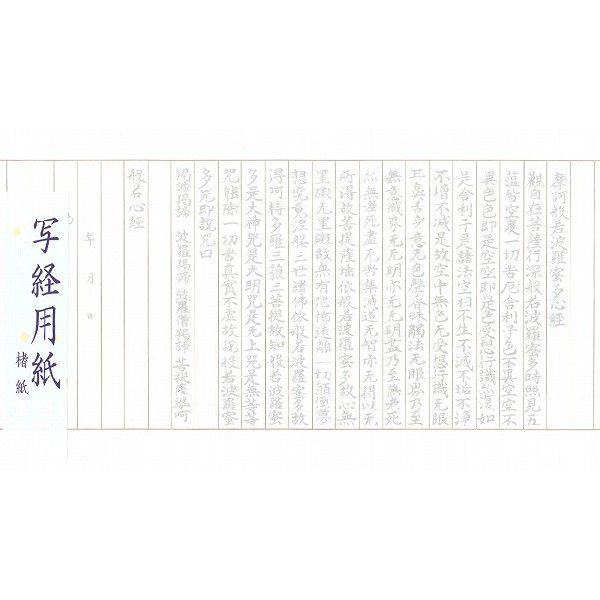 摩訶般若波羅蜜多心經
觀自在菩薩行深般若波羅蜜多時照見五
蘊皆空度一切苦厄舎利子色不異空空不
異色色即是空空即是色受想行識亦復如
是舎利子是諸法空相不生不滅不垢不淨
不增不減是故空中無色无受想行識无眼
耳鼻舌身意无色聲香味觸法无眼界乃至
無意識界无无明亦无无明盡乃至無老死
亦無老死盡无苦集滅道无智亦无得以无
所得故菩提薩埵依般若波羅蜜多故心無
罣礙无罣礙故無有恐怖遠離一切顛倒夢
想究竟涅槃三世諸佛依般若波羅蜜多故
得阿耨多羅三藐三菩提故知般若波羅蜜
多是大神咒是大明咒是无上咒是無等等
咒能除一切苦真實不虚故說般若波羅蜜
多咒即說咒曰
揭諦揭諦 波羅揭諦 波羅僧揭諦 菩提薩婆訶
般若心經
年 月 日
写経用紙
楮紙